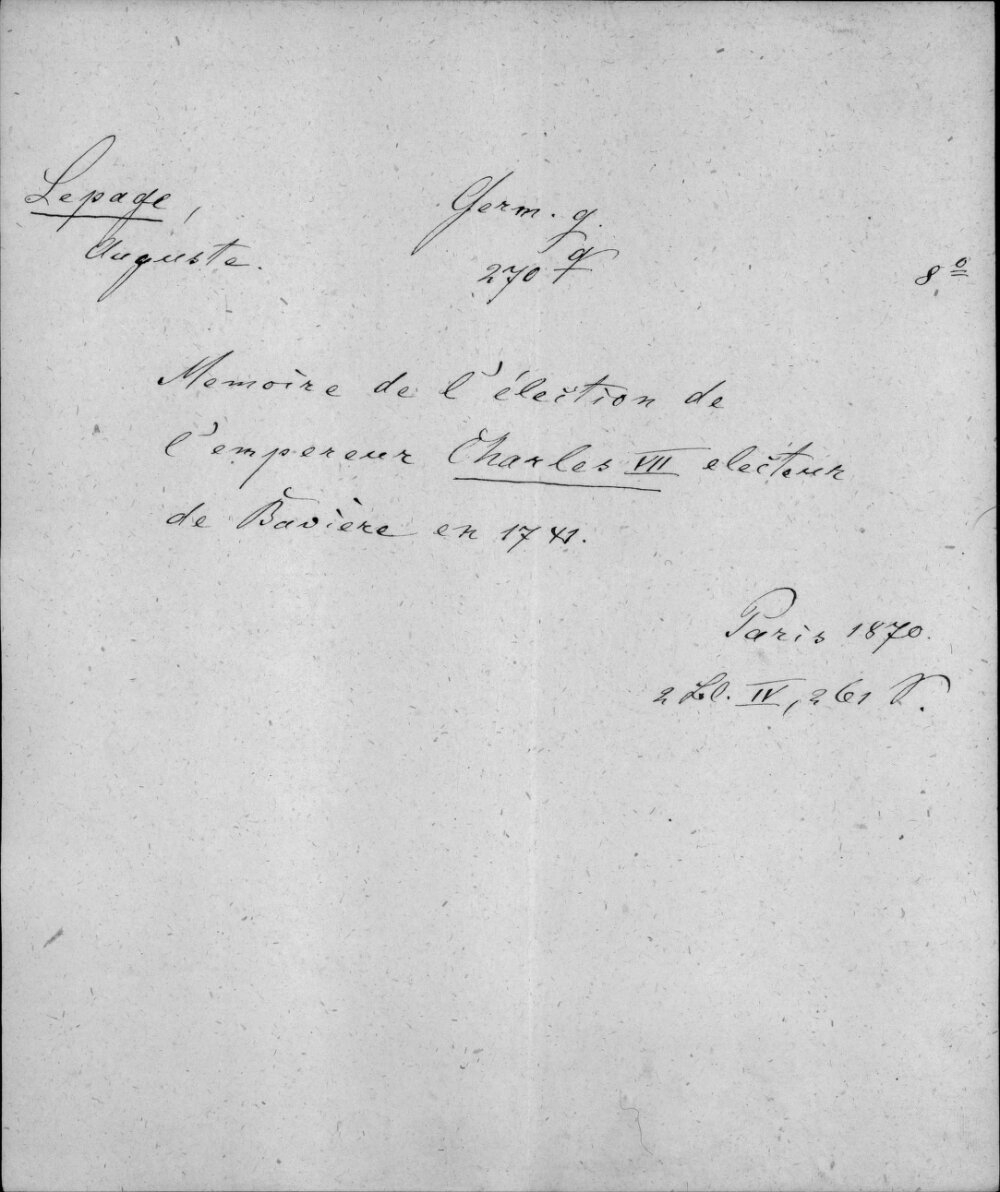 Lepage,
Auguste.
Germ. g.
270 q
8º
Memoire de l'élection de
l'empereur Charles VII electeur
de Bavière en 1741.
Paris 1870.
2 Bl. IV, 261 S.